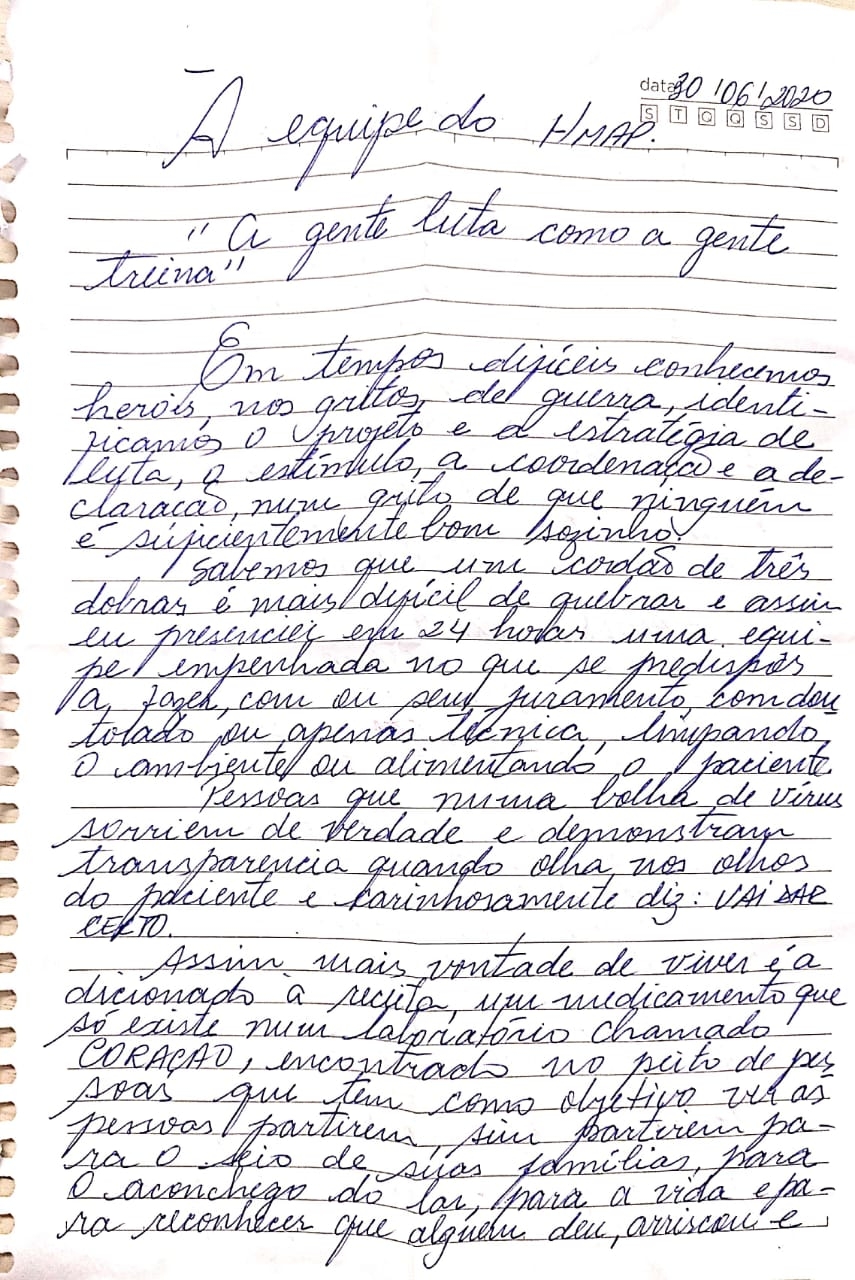 data 30/06/2020
S T Q Q S S D
À equipe do HMAP.
"A gente luta como a gente
treina"
Em tempos difíceis conhecemos
heróis, nos gritos de guerra, identi-
ficamos o projeto e a estratégia de
luta, o estímulo, a coordenação e a de-
claração, num grito de que ninguém
é suficientemente bom sozinho.
Sabemos que um cordão de três
dobras é mais difícil de quebrar e assim
eu presenciei em 24 horas uma equi-
pe empenhada no que se predispôs
a fazer, com ou sem juramento, com dou
torado ou apenas técnica, limpando
o ambiente ou alimentando o paciente.
Pessoas que numa bolha de vírus
sorriem de verdade e demonstram
transparencia quando olha nos olhos
do paciente e carinhosamente diz: VAI DAR
CERTO.
Assim, mais vontade de viver é a
dicionado à receita, um medicamento que
só existe num laboratório chamado
CORAÇÃO, encontrado no peito de pes
soas que tem como objetivo ver as
pessoas partirem, sim partirem pa-
ra o seio de suas famílias, para
o aconchego do lar, para a vida e pa-
ra reconhecer que alguém deu, arriscou e